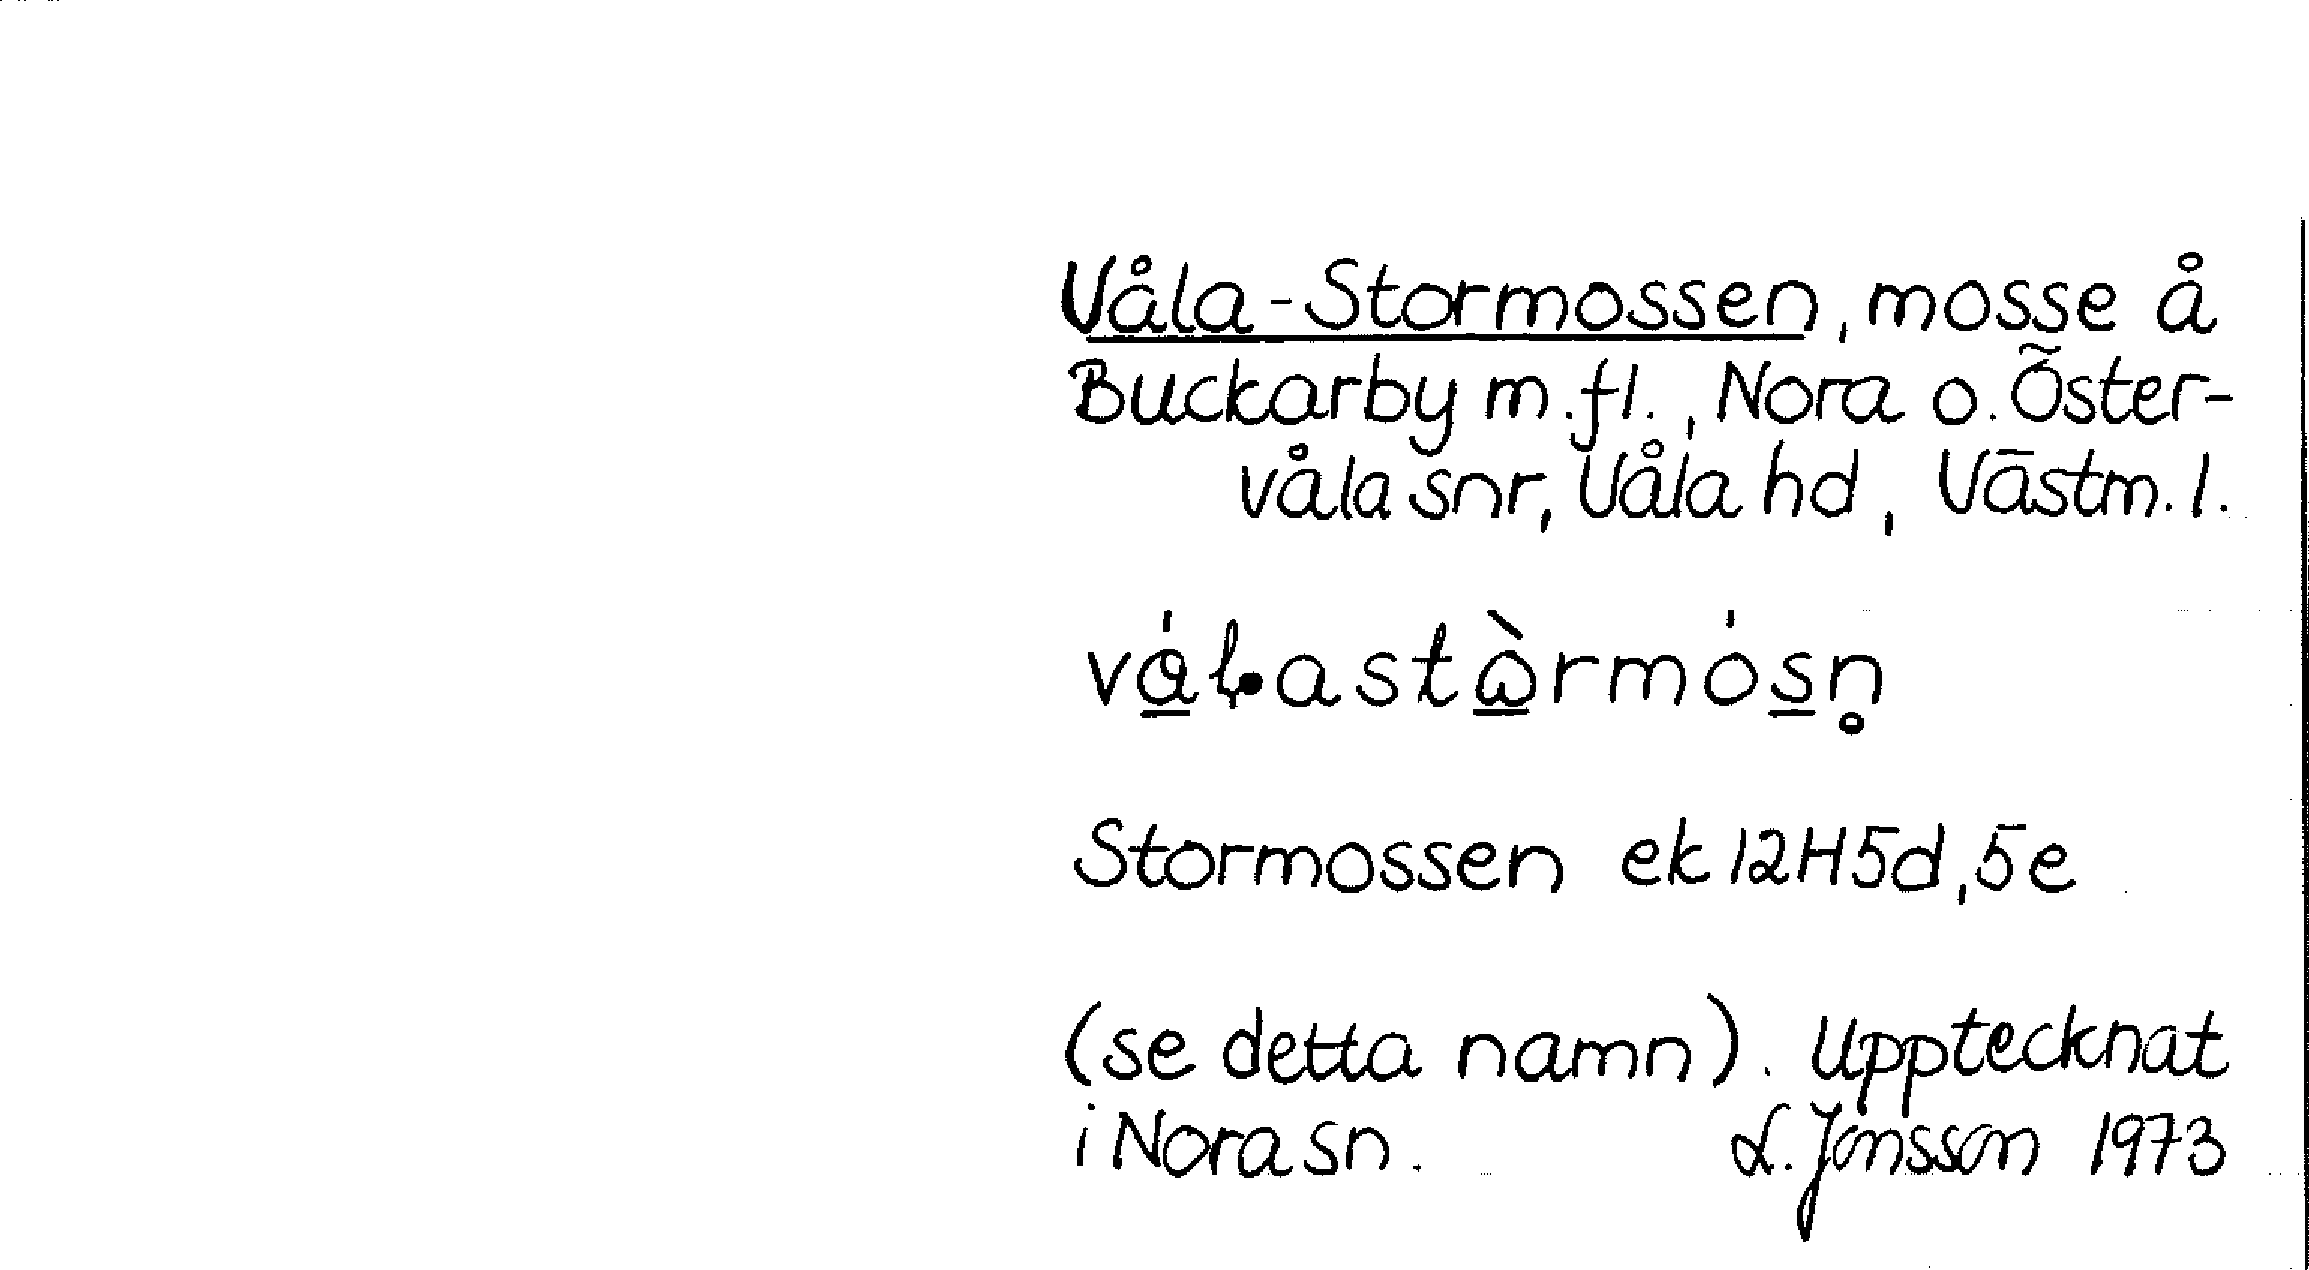 Våla-Stormossen, mosse å
Buckarby m.fl., Nora o. Öster-
våla snr, Våla hd, Västm. l.
vǻƚastὼrmósn̥
Stormossen ek 12H5d,5e
(se detta namn). Upptecknat
i Nora sn. L. Jonsson 1973